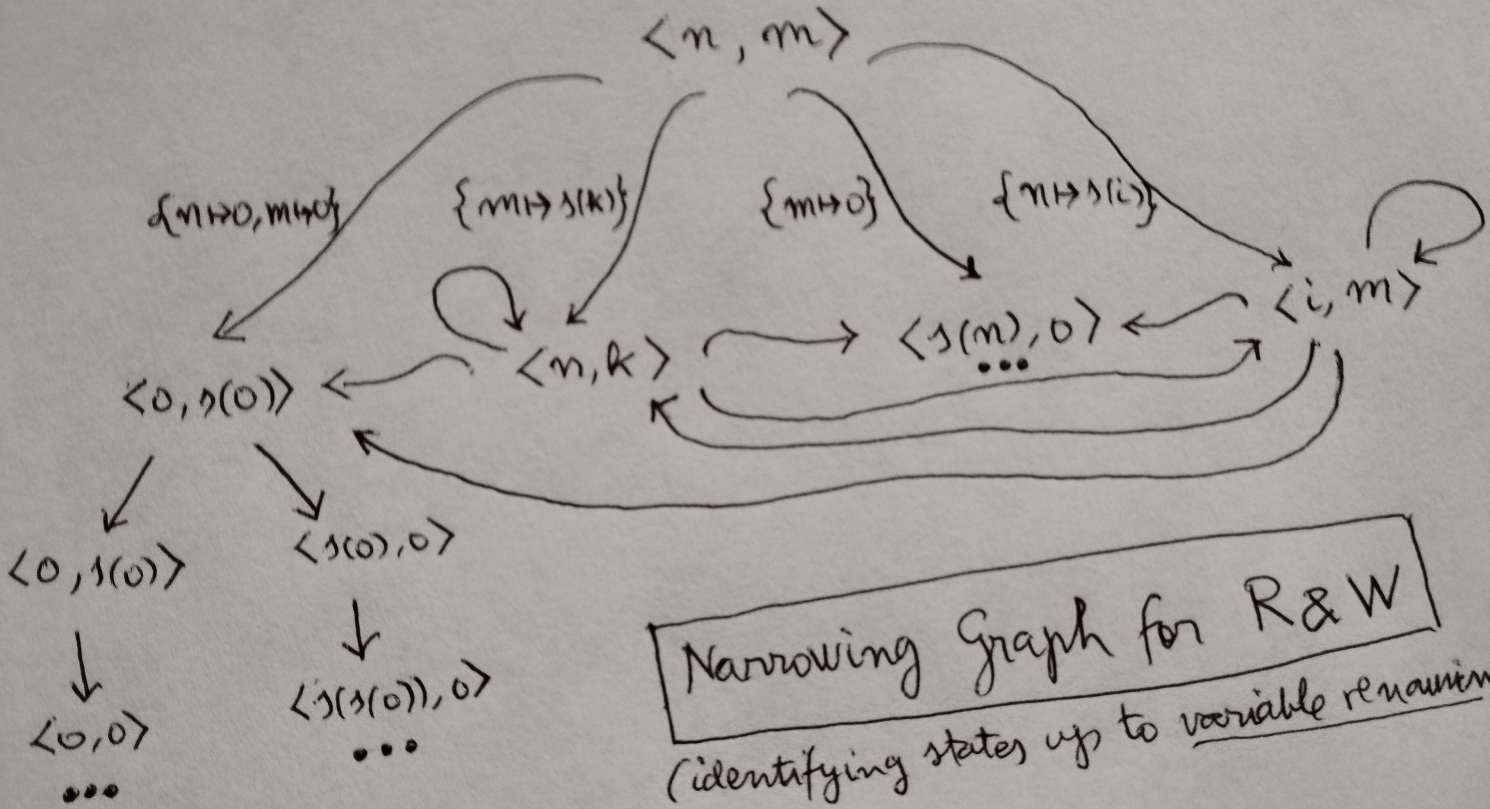 <n, m>
{n↦0, m↦0}
{m↦s(k)}
{m↦0}
{n↦s(i)}
<i, m>
<s(n), 0>
...
<n, k>
<0, s(0)>
<0, s(0)>
<s(0), 0>
<0, 0>
...
<s(s(0)), 0>
...
Narrowing Graph for R & W
(identifying states up to variable renamin